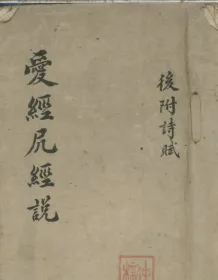 後附詩賦
愛經尻經説